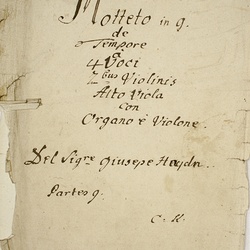 Motteto in g.
de
Tempore
à
4 Voci
2bus Violinis
Alto Viola
con
Organo è Violone.
Del Sigre Giusepe Haydn.
Partes 9.
C. K.